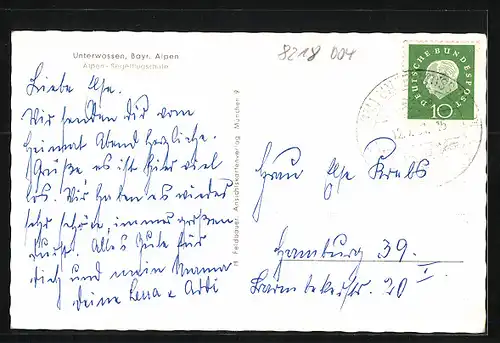 Unterwössen, Bayr. Alpen
Alpen-Segelflugschule
8218 004
DEUTSCHE BUNDESPOST
10
Liebe Ilse.
Wir senden dir vom
Heimat Abend herzliche
Grüße es ist hier viel
los. Wir haben es wieder
sehr schön, immer großen
Durst. Alles Gute für
dich und mein Mama
deine Lena u Adi
H. Feldbauer, Ansichtskartenverlag, München 9
Frau Ilse Krebs
Hamburg 39.
Barmbekerstr. 20 I.